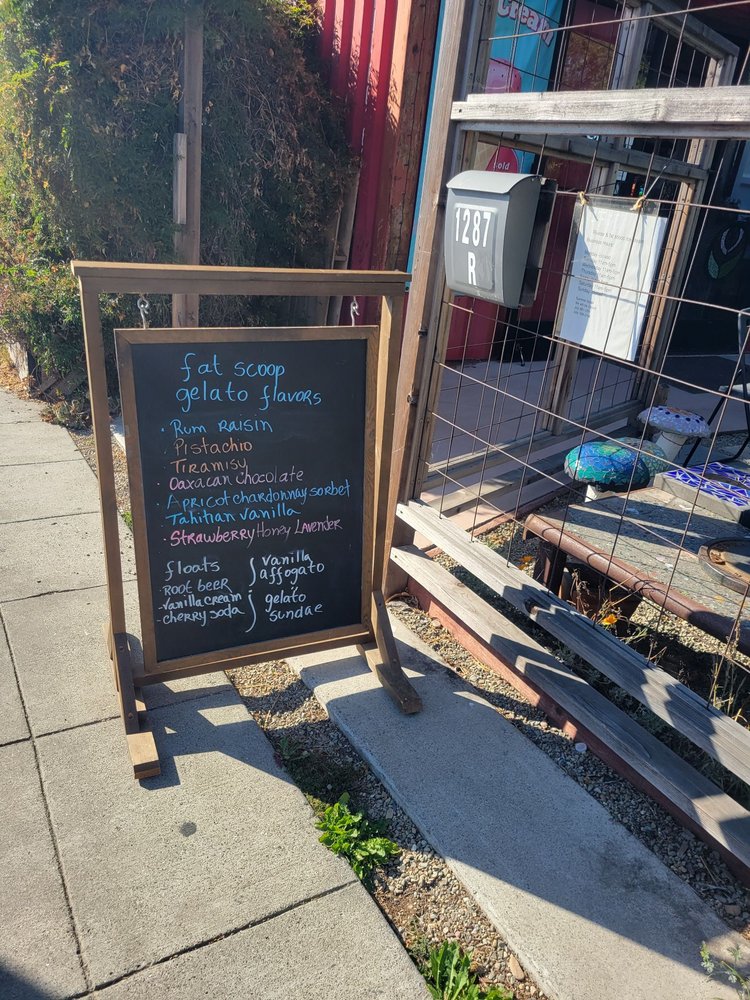 Cream
old
1287
R
fat scoop
gelato flavors
· Rum raisin
· Pistachio
Tiramisy
· Oaxacan chocolate
· Apricot chardonnay sorbet
Tahitian vanilla
· Strawberry Honey Lavender
floats
ROOT beer
-vanilla cream
-cherry soda
vanilla
affogato
gelato
sundae